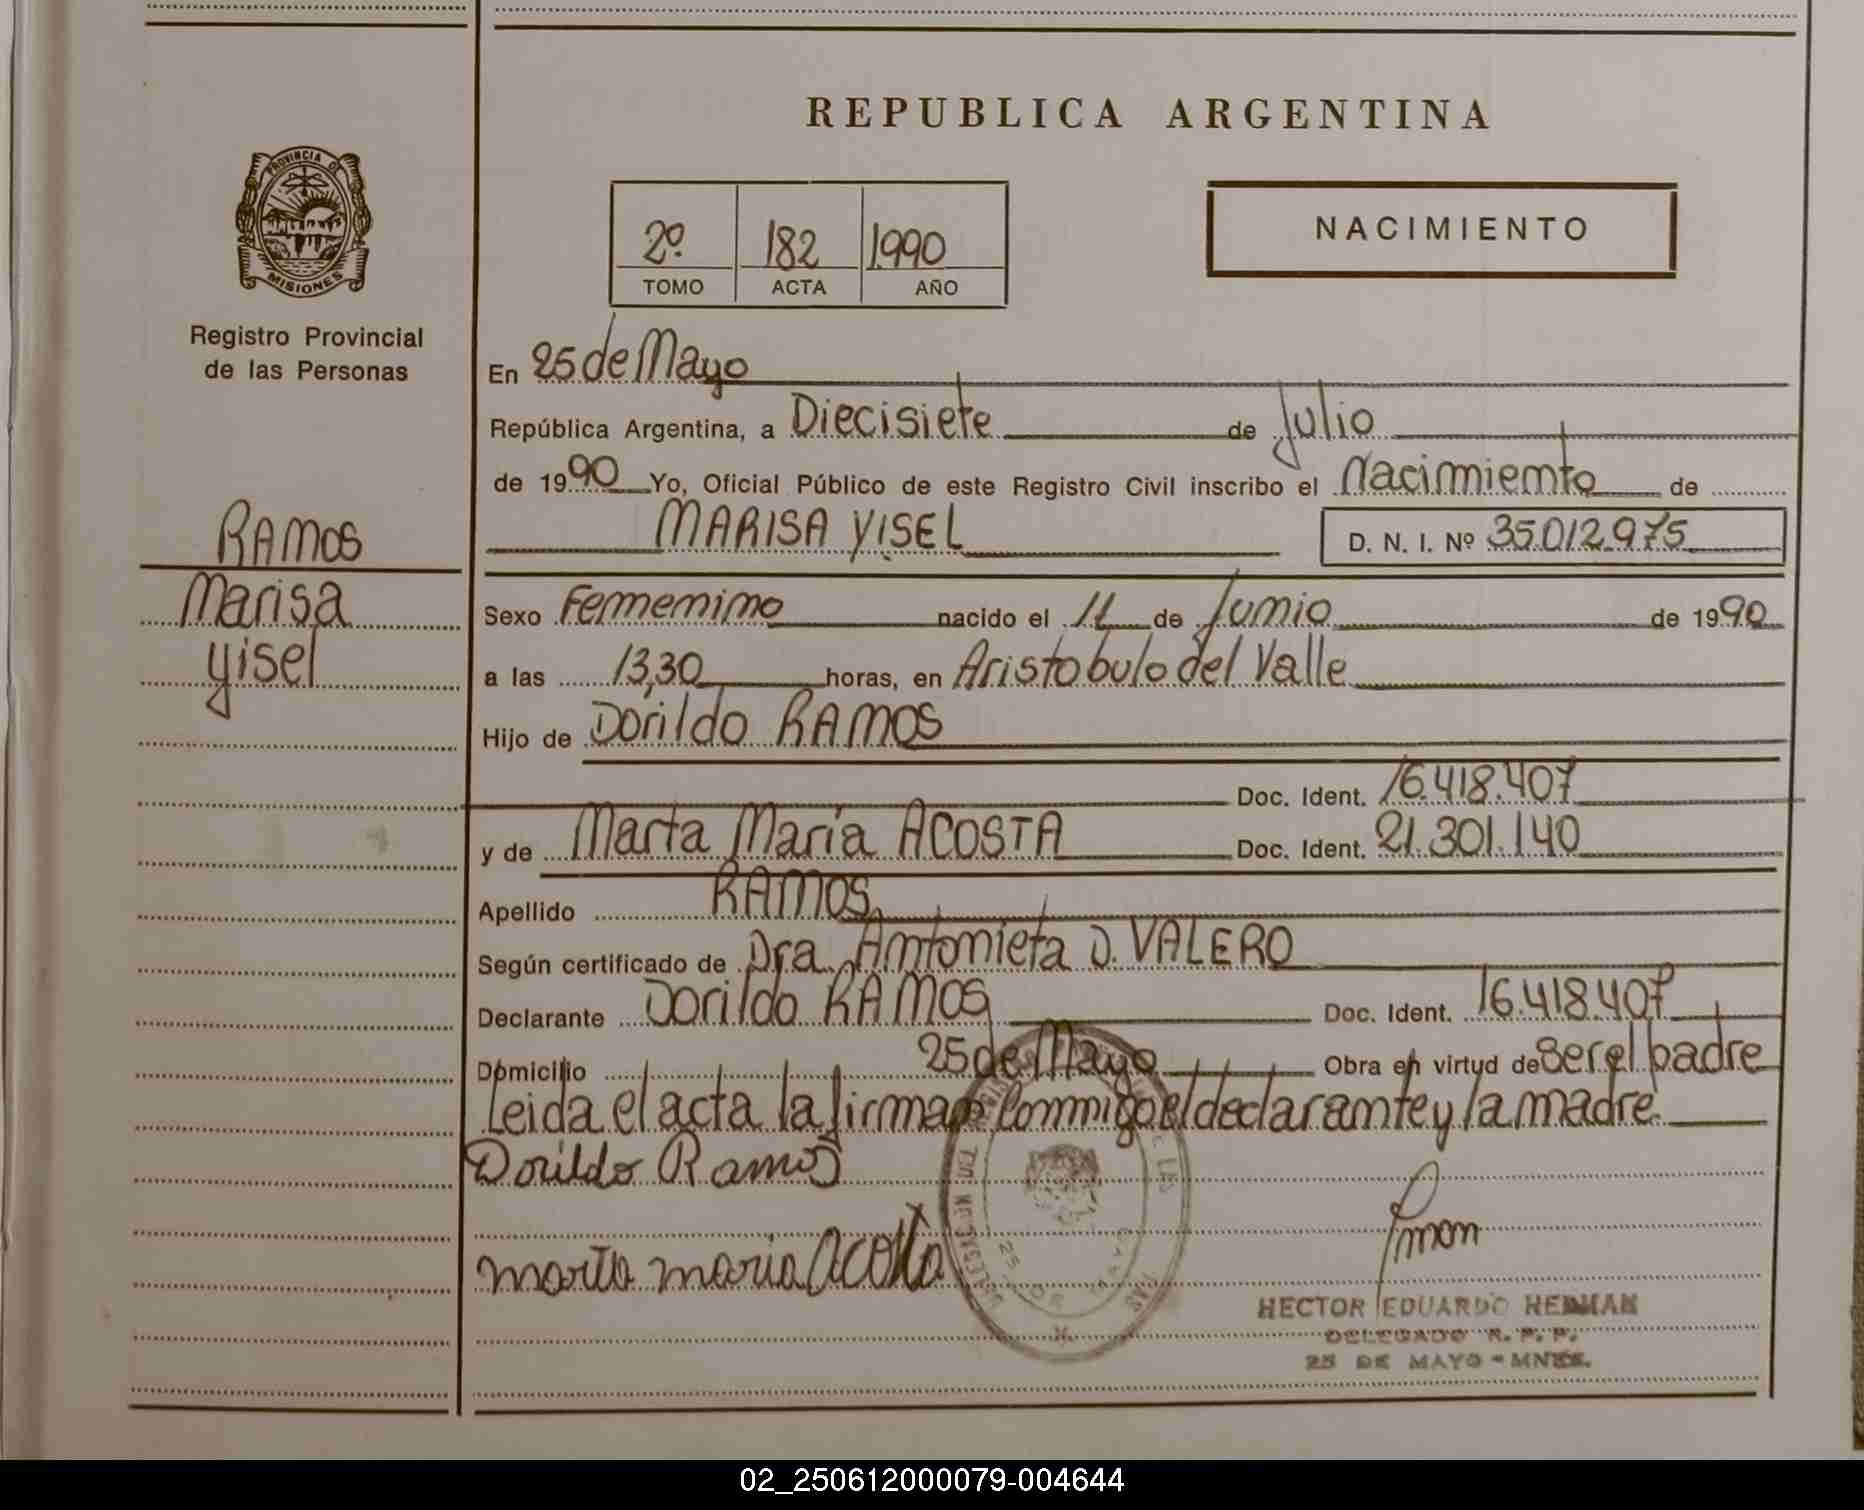 REPUBLICA ARGENTINA
PROVINCIA DE
MISIONES
Registro Provincial
de las Personas
RAMOS
Marisa
Yisel
2º 182 1990
TOMO ACTA AÑO
NACIMIENTO
En 25 de Mayo
República Argentina, a Diecisiete de Julio
de 1990 Yo, Oficial Público de este Registro Civil inscribo el Nacimiento de
MARISA YISEL D. N. I. Nº 35.012.975
Sexo Femenino nacido el 11 de Junio de 1990
a las 13,30 horas, en Aristobulo del Valle
Hijo de Dorildo RAMOS
Doc. Ident. 16.418.407
y de Marta María ACOSTA Doc. Ident. 21.301.140
Apellido RAMOS
Según certificado de Dra. Antonieta D. VALERO
Declarante Dorildo RAMOS Doc. Ident. 16.418.407
Domicilio 25 de Mayo Obra en virtud de Ser el padre
Leida el acta la firman Conmigo el declarante y la madre
Dorildo Ramos
marta maria Acosta
HECTOR EDUARDO HEDMAN
DELEGADO R. P. P.
25 DE MAYO - MNES.
02_250612000079-004644